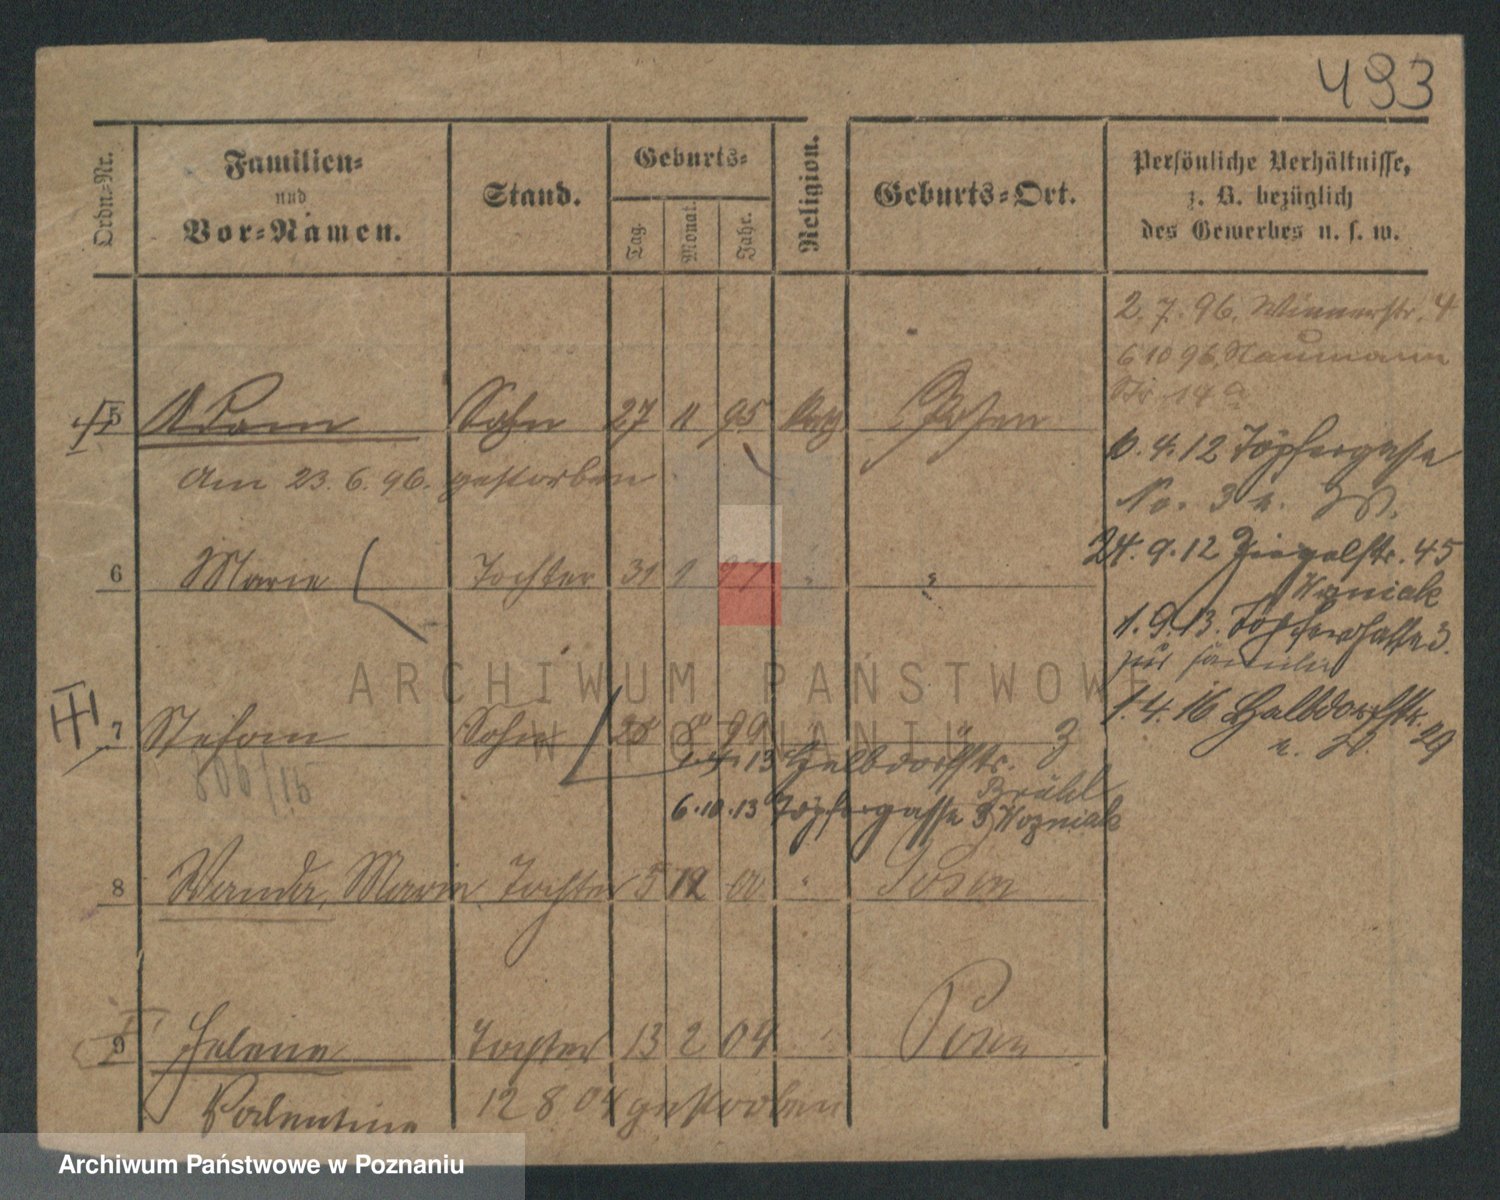 493
Ordn.-Nr.
Familien-
und
Vor-Namen.
Stand.
Geburts-
Tag.
Monat.
Jahr.
Religion.
Geburts-Ort.
Persönliche Verhältnisse,
z. B. bezüglich
des Gewerbes u. s. w.
2. 7. 96. Wienerstr. 4
6 10 96. Naumann
Str 14a
5 Adam Sohn 27 11 95 Kath Posen
Am 23. 6. 96. gestorben
10. 4. 12 Töpfergasse
No. 3
6 Marie Tochter 31 1 97 " "
24. 9. 12 Ziegelstr. 45
Wozniak
1. 9. 13. Töpfergasse 3.
zur Familie
7 Stefan Sohn 28 8 99 " "
1. 4. 16 Halbdorfstr. 29
1. 4. 13 Halbdorfstr. 3
Brühl
6. 10. 13 Töpfergasse 3 Wozniak
8 Wanda, Marie Tochter 5 12 00 " Posen
9 Helene Tochter 13 2 04 Posen
Valentine 12 8 04 gestorben
ARCHIWUM PAŃSTWOWE
W POZNANIU
Archiwum Państwowe w Poznaniu